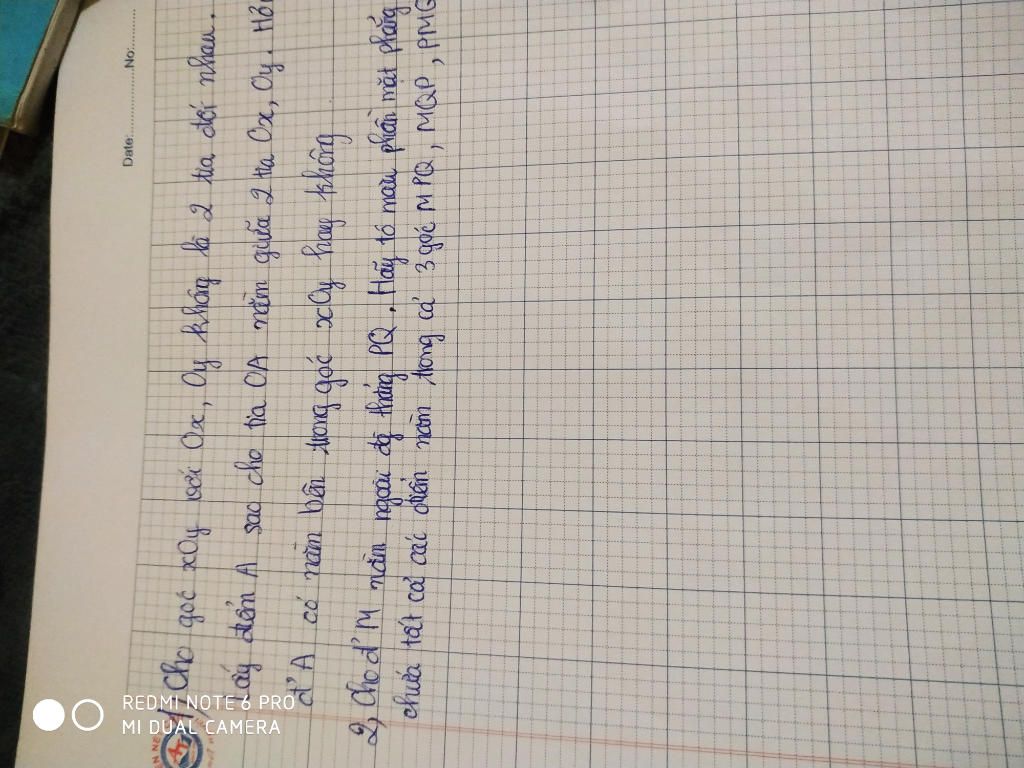 Date:............No:............
Cho góc xOy với Ox, Oy không là 2 tia đối nhau.
Lấy điểm A sao cho tia OA nằm giữa 2 tia Ox, Oy.
đ' A có nằm bên trong góc xOy hay không
2, Cho đ' M nằm ngoài đg thẳng PQ. Hãy tô màu phần mặt phẳng
chứa tất cả các điểm nằm trong cả 3 góc MPQ, MQP, PMQ
REDMI NOTE 6 PRO
MI DUAL CAMERA